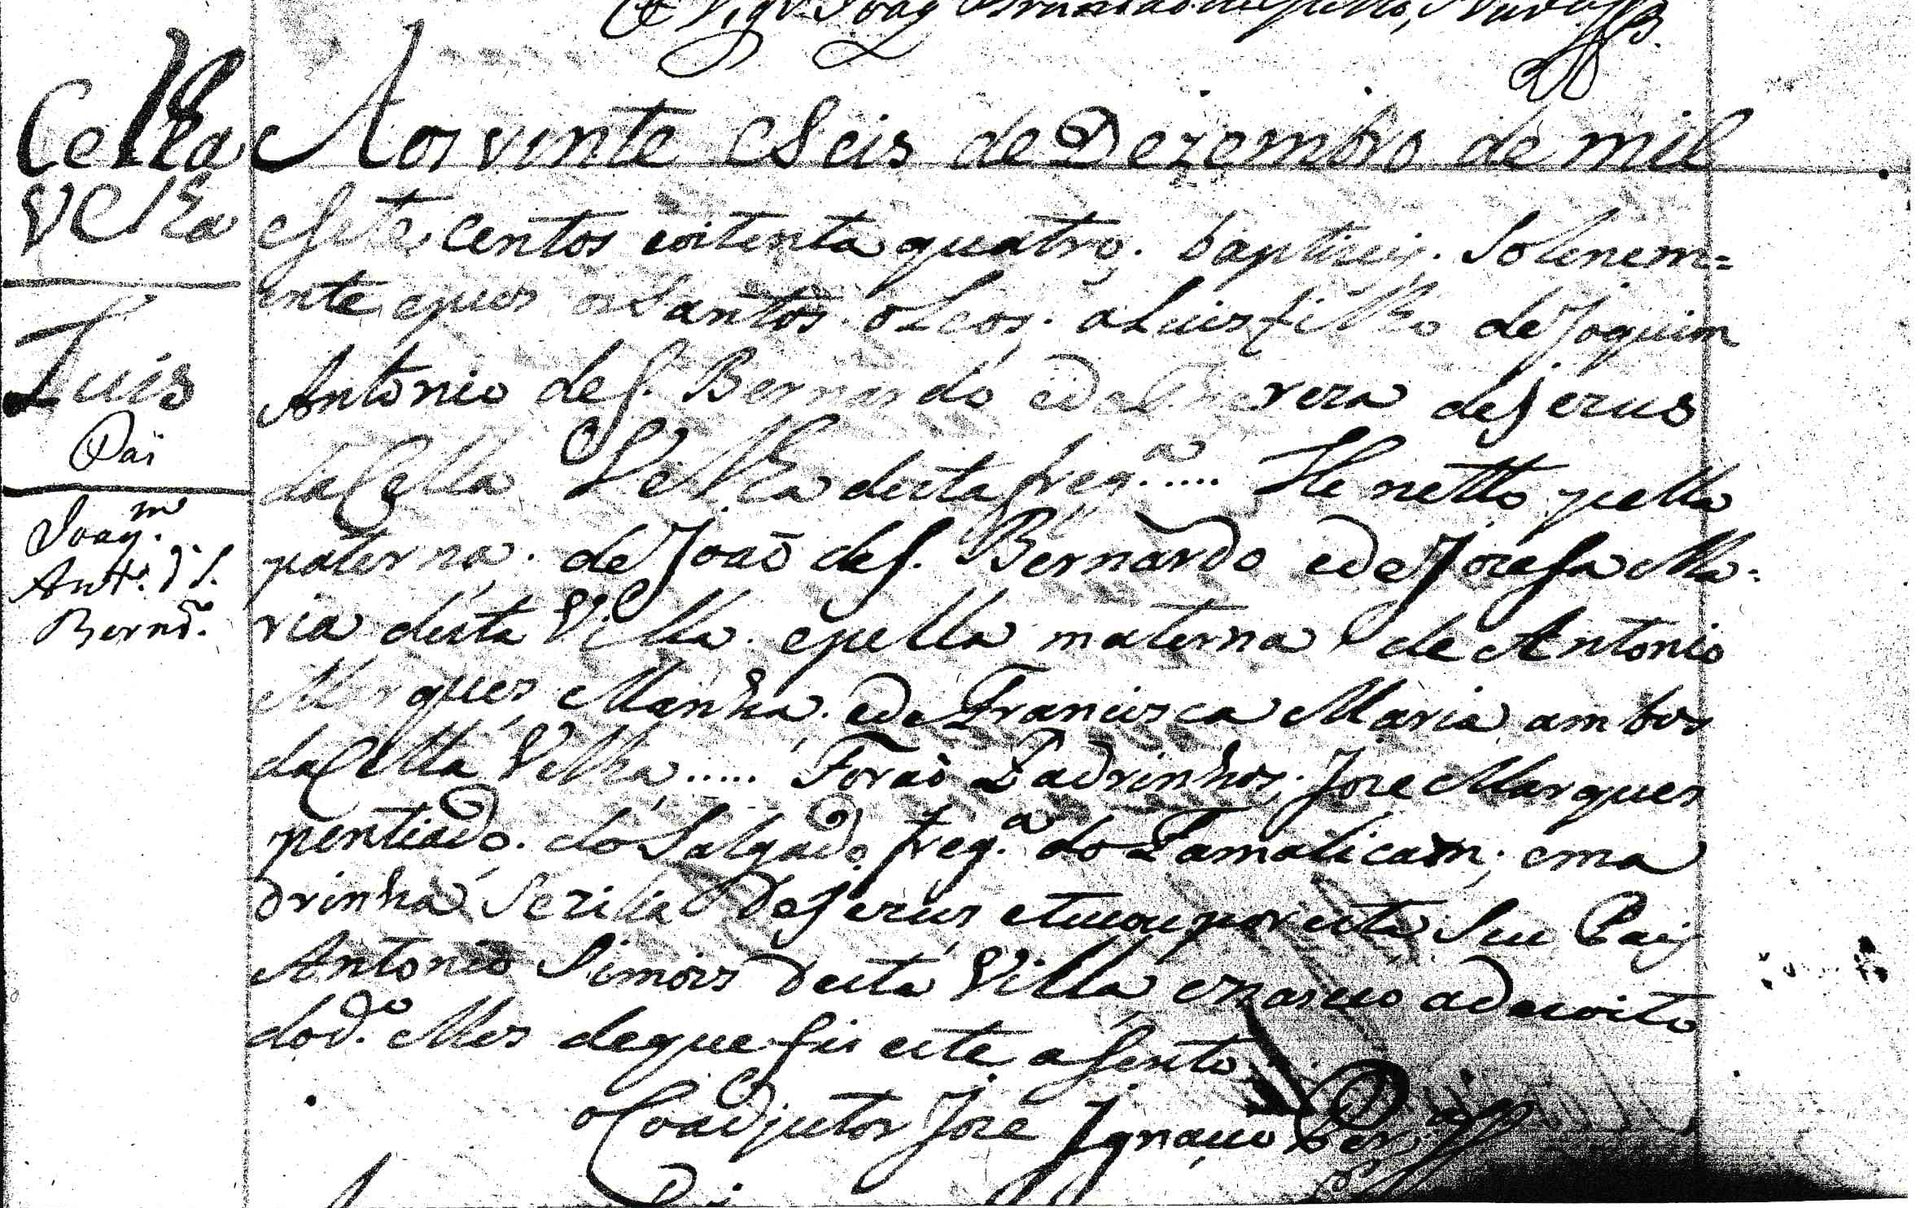 18
Cella
Velha
Luis
Pai
Joaq.m
Ant.o d S.
Bernd.o
Aos vinte e Seis de Dezembro de mil
e sete centos e oitenta quatro. baptizei. Solenem=
ente e pus os Santos. oleos. a Luis filho de Joquim
Antonio de S. Bernardo e de Thereza de Jezus
da Cella Velha desta freg.a ..... He netto pella
paterna. de João de S. Bernardo e de Jozefa Ma.
ria desta Villa. e pella materna de Antonio
Marques Manha. e de Francisca Maria ambos
da Cella Velha ..... Forão Padrinhos; Joze Marques
pentiado. do Salgado, freg.a do Famalicam; e ma
drinha de Jezus e tucou por esta Seu Pai
Antonio Simois desta Villa e nasceo a dezoito
do d.o Mes de que fis este asento
o Coadjutor Joze Ignacio